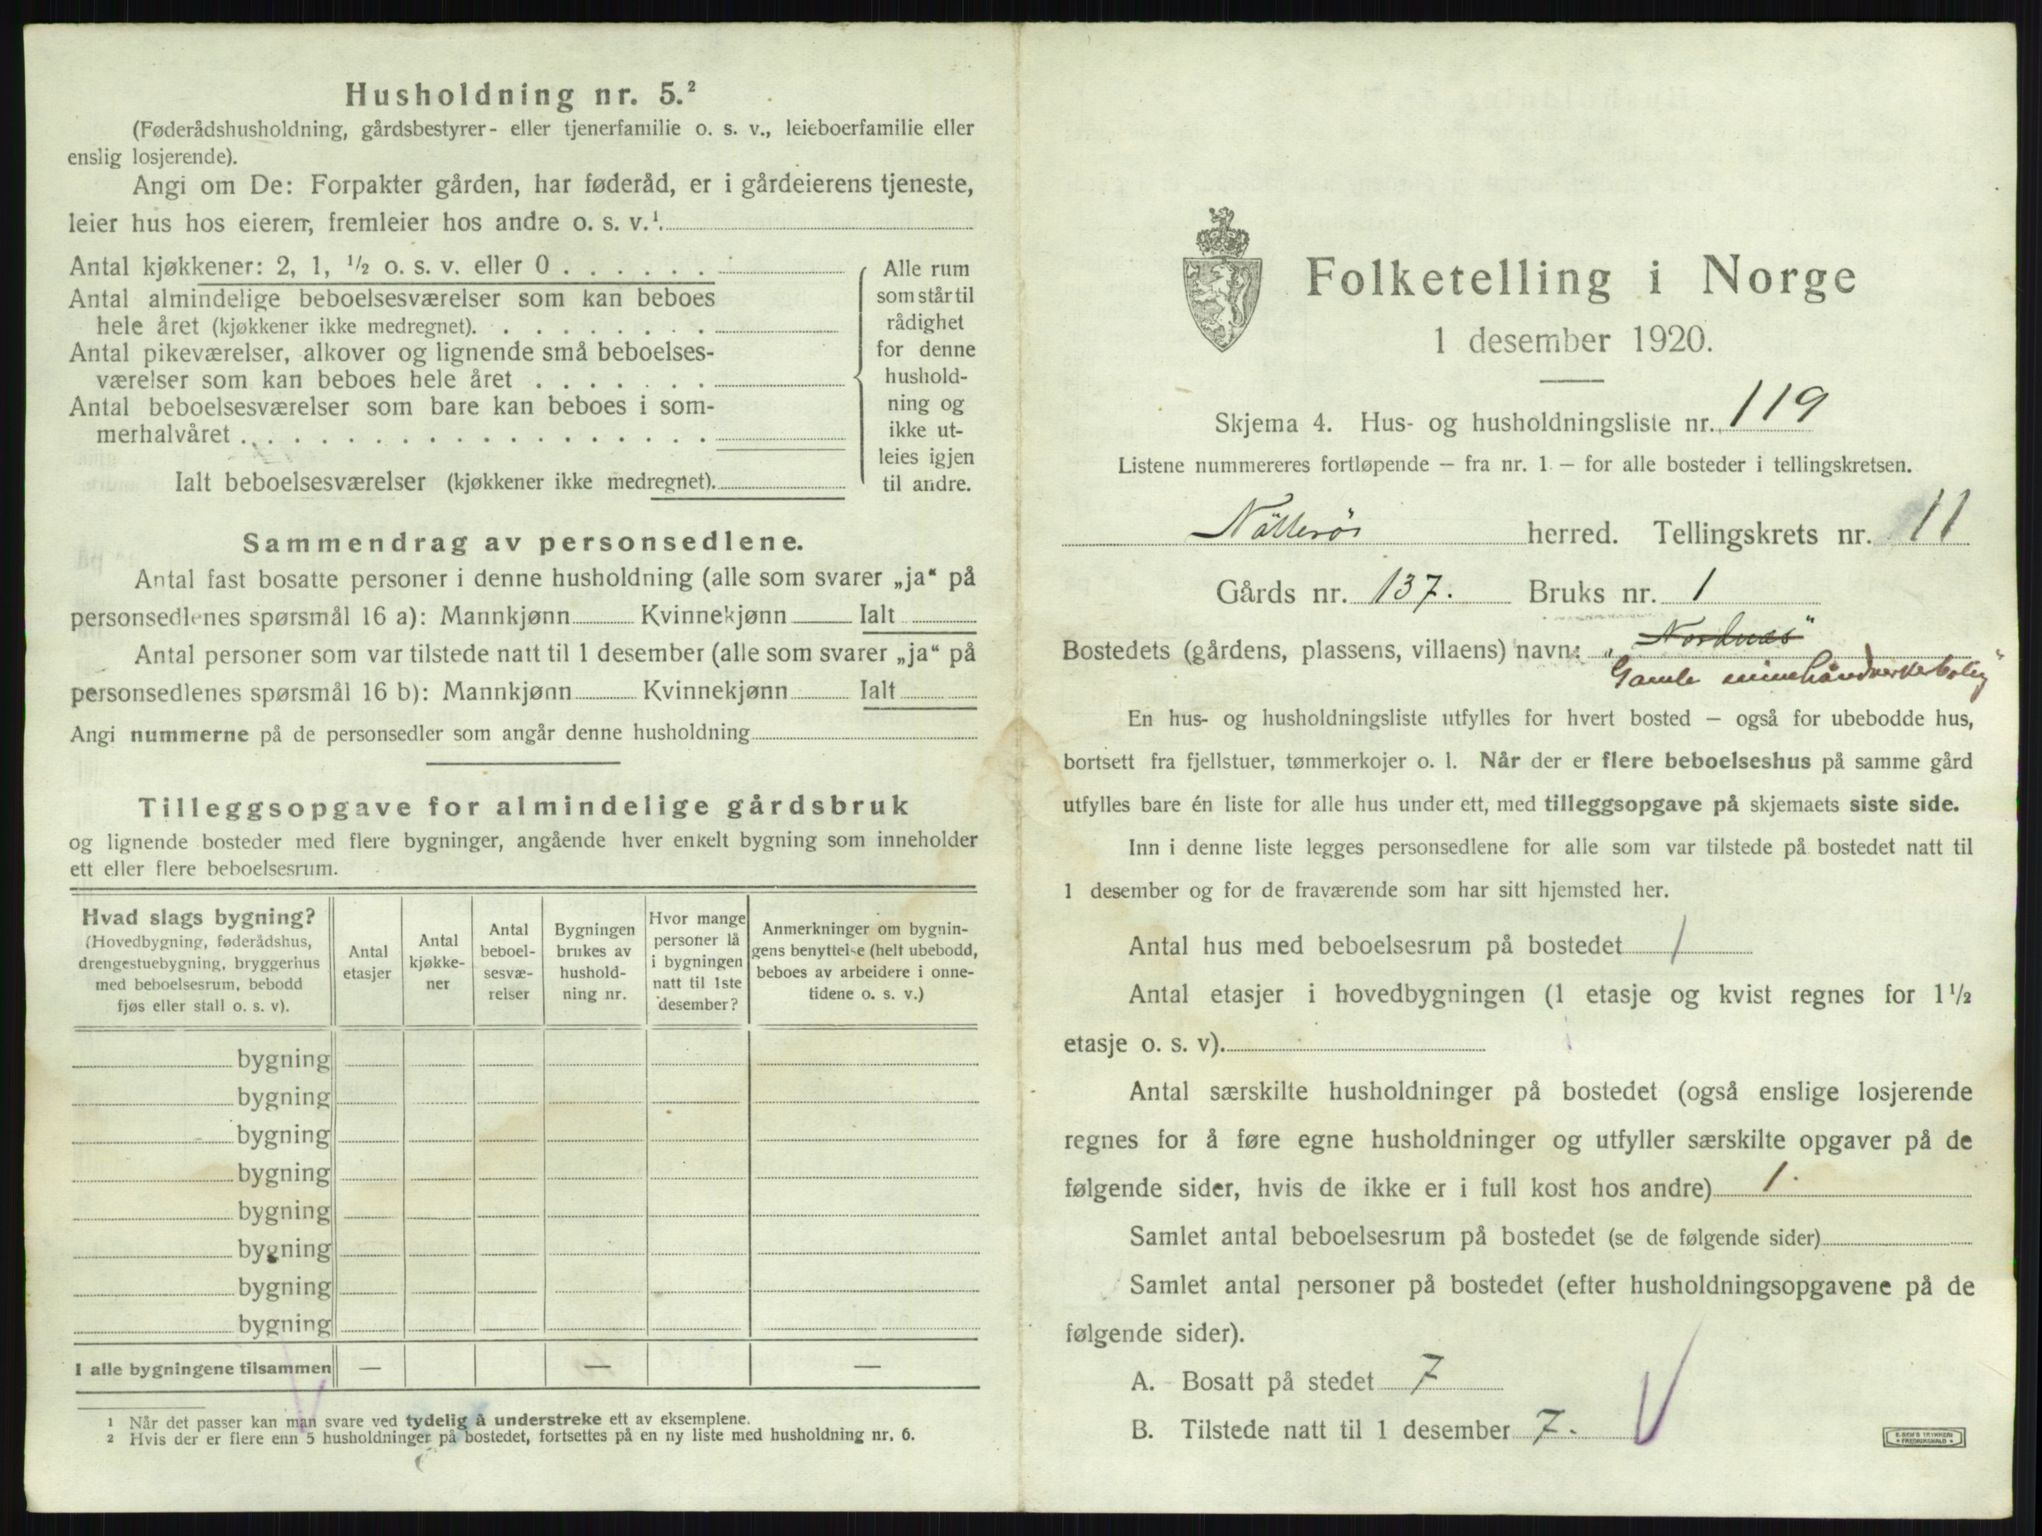 Husholdning nr. 5.²
(Føderådshusholdning, gårdsbestyrer- eller tjenerfamilie o. s. v., leieboerfamilie eller
enslig losjerende).
Angi om De: Forpakter gården, har føderåd, er i gårdeierens tjeneste,
leier hus hos eieren, fremleier hos andre o. s. v.¹
Antal kjøkkener: 2, 1, ½ o. s. v. eller 0
Antal almindelige beboelsesværelser som kan beboes
hele året (kjøkkener ikke medregnet).
Antal pikeværelser, alkover og lignende små beboelses-
værelser som kan beboes hele året
Antal beboelsesværelser som bare kan beboes i som-
merhalvåret
Ialt beboelsesværelser (kjøkkener ikke medregnet).
Alle rum
som står til
rådighet
for denne
hushold-
ning og
ikke ut-
leies igjen
til andre.
Sammendrag av personsedlene.
Antal fast bosatte personer i denne husholdning (alle som svarer „ja“ på
personsedlenes spørsmål 16 a): Mannkjønn Kvinnekjønn Ialt
Antal personer som var tilstede natt til 1 desember (alle som svarer „ja“ på
personsedlenes spørsmål 16 b): Mannkjønn Kvinnekjønn Ialt
Angi nummerne på de personsedler som angår denne husholdning
Tilleggsopgave for almindelige gårdsbruk
og lignende bosteder med flere bygninger, angående hver enkelt bygning som inneholder
ett eller flere beboelsesrum.
Hvad slags bygning?
(Hovedbygning, føderådshus,
drengestuebygning, bryggerhus
med beboelsesrum, bebodd
fjøs eller stall o. s. v).
Antal
etasjer
Antal
kjøkke-
ner
Antal
beboel-
sesvæ-
relser
Bygningen
brukes av
hushold-
ning nr.
Hvor mange
personer lå
i bygningen
natt til 1ste
desember?
Anmerkninger om bygnin-
gens benyttelse (helt ubebodd,
beboes av arbeidere i onne-
tidene o. s. v.)
bygning
bygning
bygning
bygning
bygning
bygning
bygning
bygning
I alle bygningene tilsammen — — —
¹ Når det passer kan man svare ved tydelig å understreke ett av eksemplene.
² Hvis der er flere enn 5 husholdninger på bostedet, fortsettes på en ny liste med husholdning nr. 6.
Folketelling i Norge
1 desember 1920.
Skjema 4. Hus- og husholdningsliste nr. 119
Listene nummereres fortløpende – fra nr. 1 – for alle bosteder i tellingskretsen.
Nötterös herred. Tellingskrets nr. 11
Gårds nr. 137. Bruks nr. 1
Bostedets (gårdens, plassens, villaens) navn: „Nordnæs“
Gamle minehåndverkerbolig“
En hus- og husholdningsliste utfylles for hvert bosted – også for ubebodde hus,
bortsett fra fjellstuer, tømmerkojer o. l. Når der er flere beboelseshus på samme gård
utfylles bare én liste for alle hus under ett, med tilleggsopgave på skjemaets siste side.
Inn i denne liste legges personsedlene for alle som var tilstede på bostedet natt til
1 desember og for de fraværende som har sitt hjemsted her.
Antal hus med beboelsesrum på bostedet 1
Antal etasjer i hovedbygningen (1 etasje og kvist regnes for 1½
etasje o. s. v).
Antal særskilte husholdninger på bostedet (også enslige losjerende
regnes for å føre egne husholdninger og utfyller særskilte opgaver på de
følgende sider, hvis de ikke er i full kost hos andre) 1.
Samlet antal beboelsesrum på bostedet (se de følgende sider)
Samlet antal personer på bostedet (efter husholdningsopgavene på de
følgende sider).
A. Bosatt på stedet 7
B. Tilstede natt til 1 desember 7.